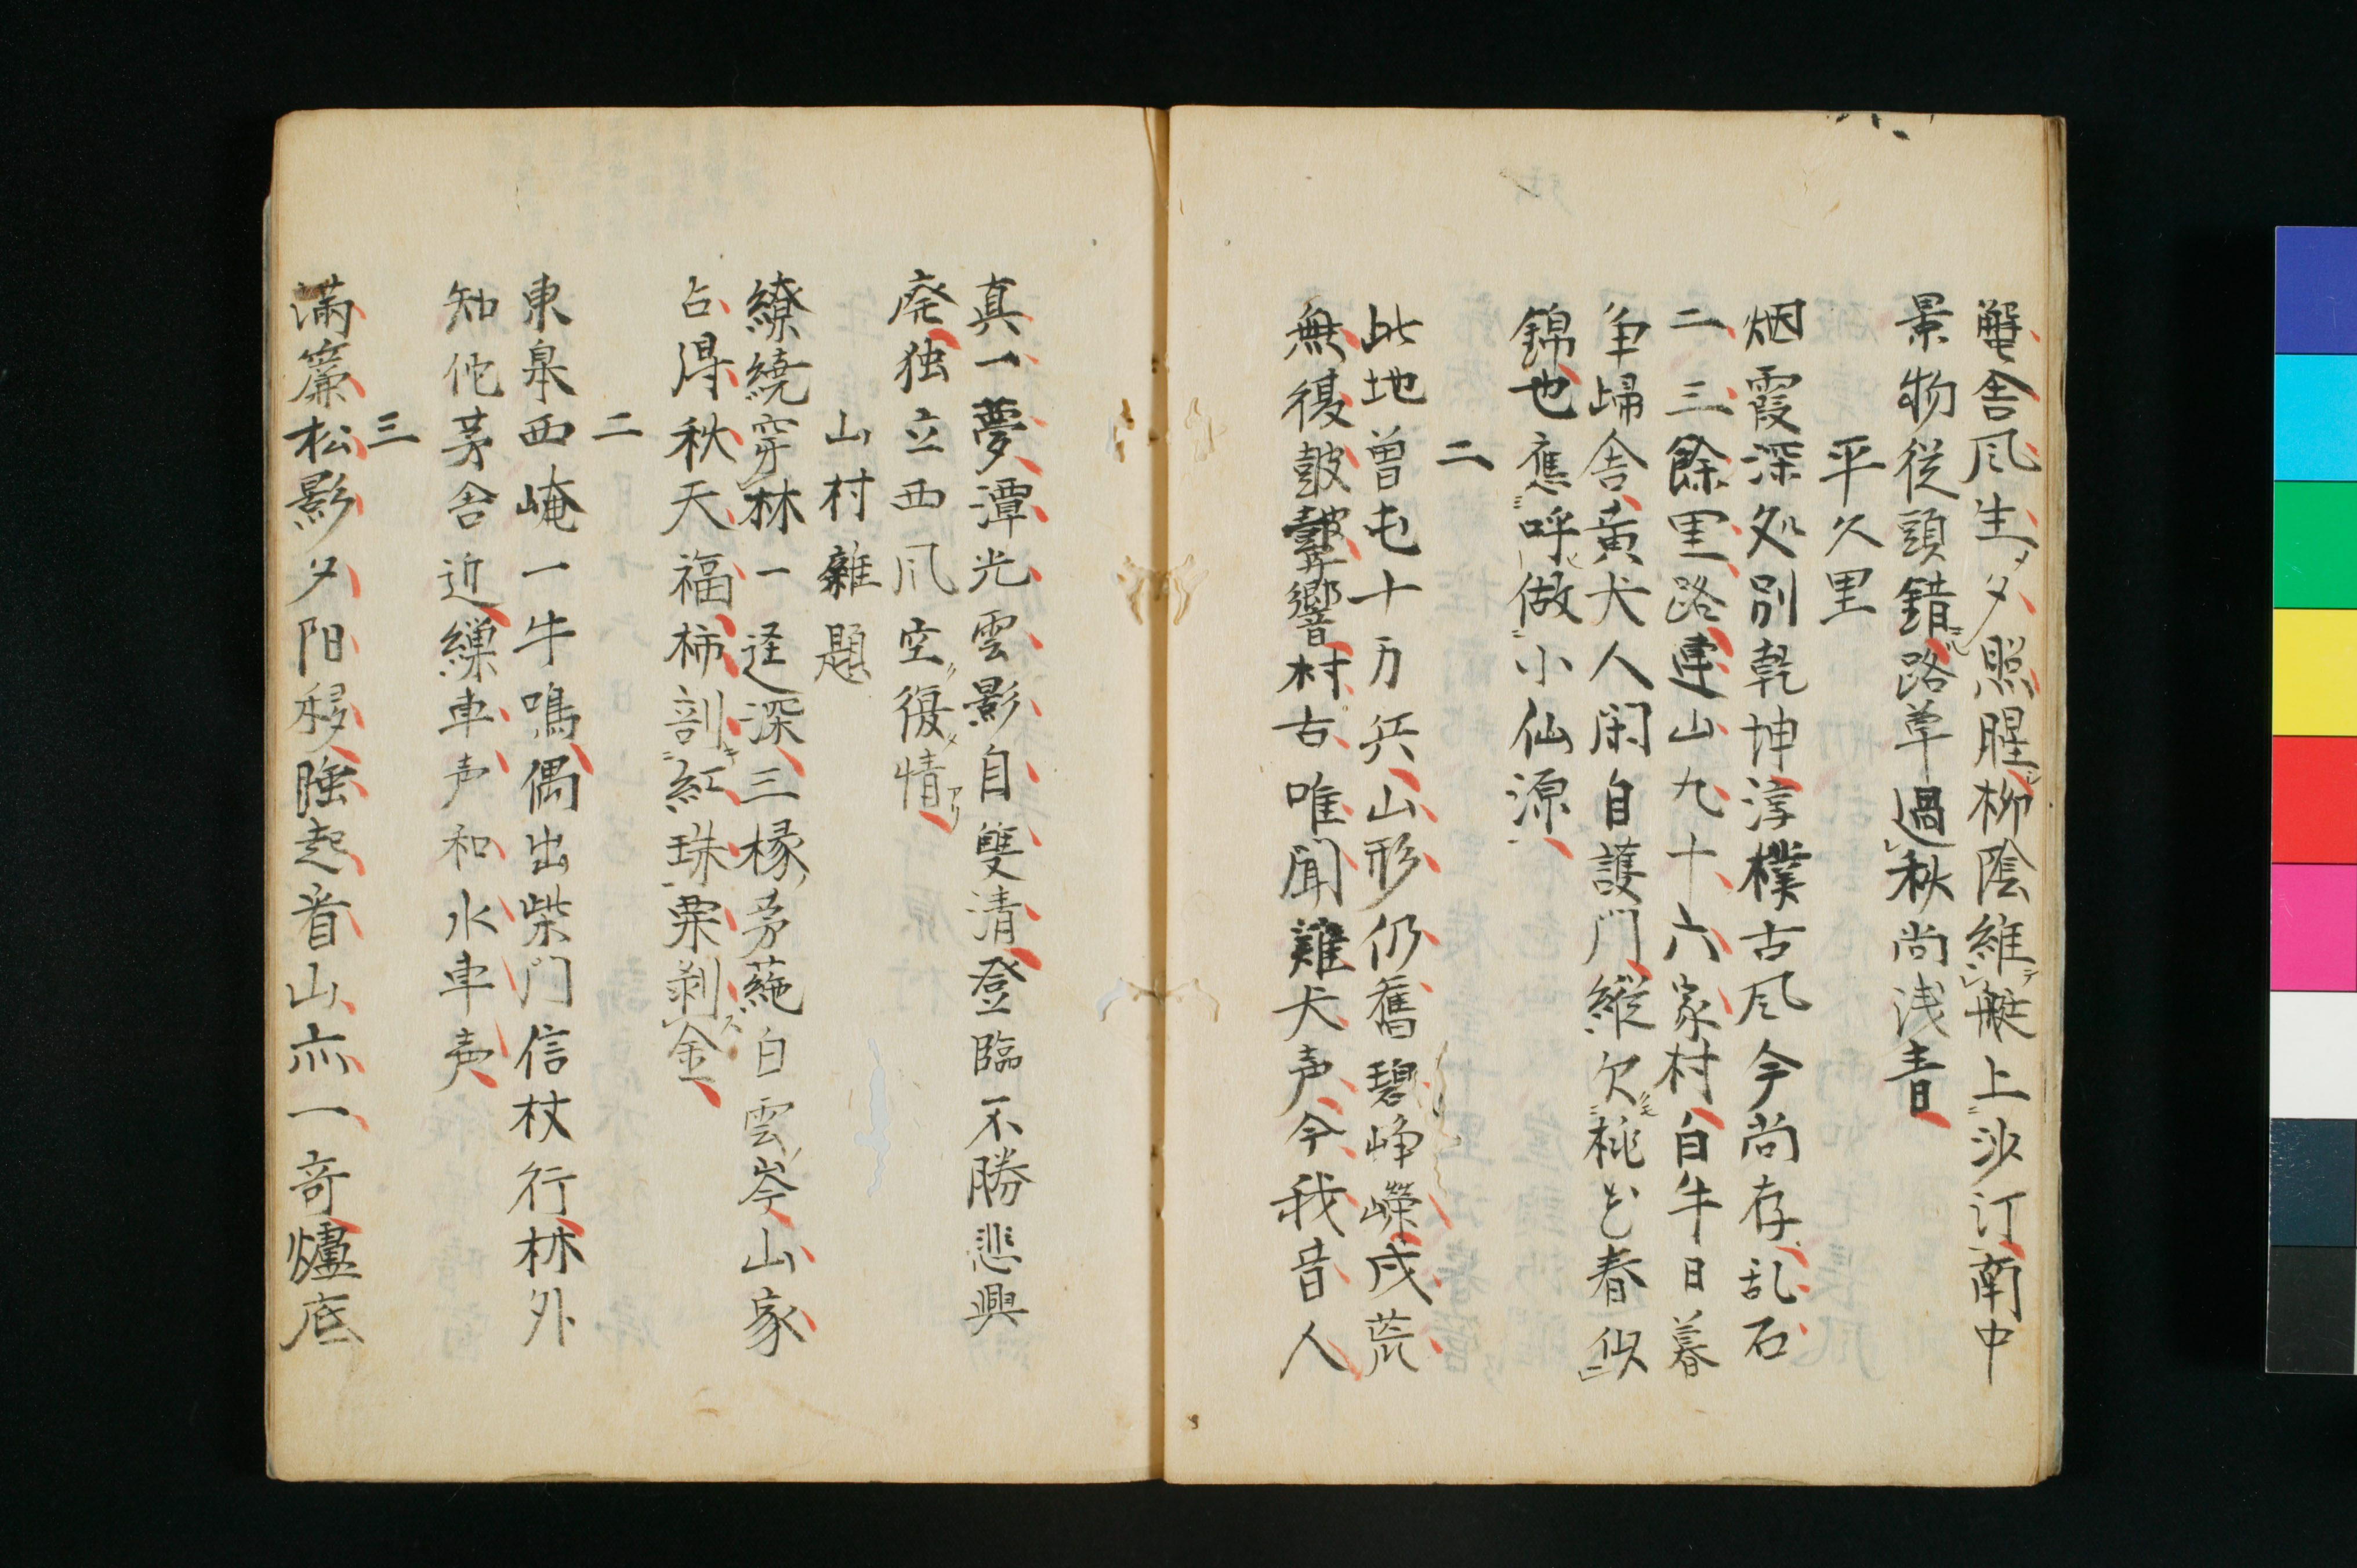 蟹舎风生夕照腥柳陰維艇上沙汀菌中
景物従頭錯路草過秋尚浅青
平久里
烟霞深処別乾坤淳樸古风今尚存乱石
二三餘里路連山九十六家村白牛日暮
争帰舎黄犬人閑自護门縦欠桃花春似
錦也應呼做小仙源
二
此地曽屯十万兵山形仍舊碧崢嶸戍荒
無復鼓鼙響村古唯聞雞犬声今我昔人
真一夢潭光雲影自雙清登臨不勝悲興
廃独立西风空復情
山村雜題
繚繞穿林一逕深三椽茅蓏白雲岑山家
占得秋天福柿剖紅珠栗剥金
二
東皐西崦一牛鳴偶出柴门信杖行林外
知他茅舎近繅車声和水車声
三
満簾松影夕阳移睡起看山亦一奇爐底